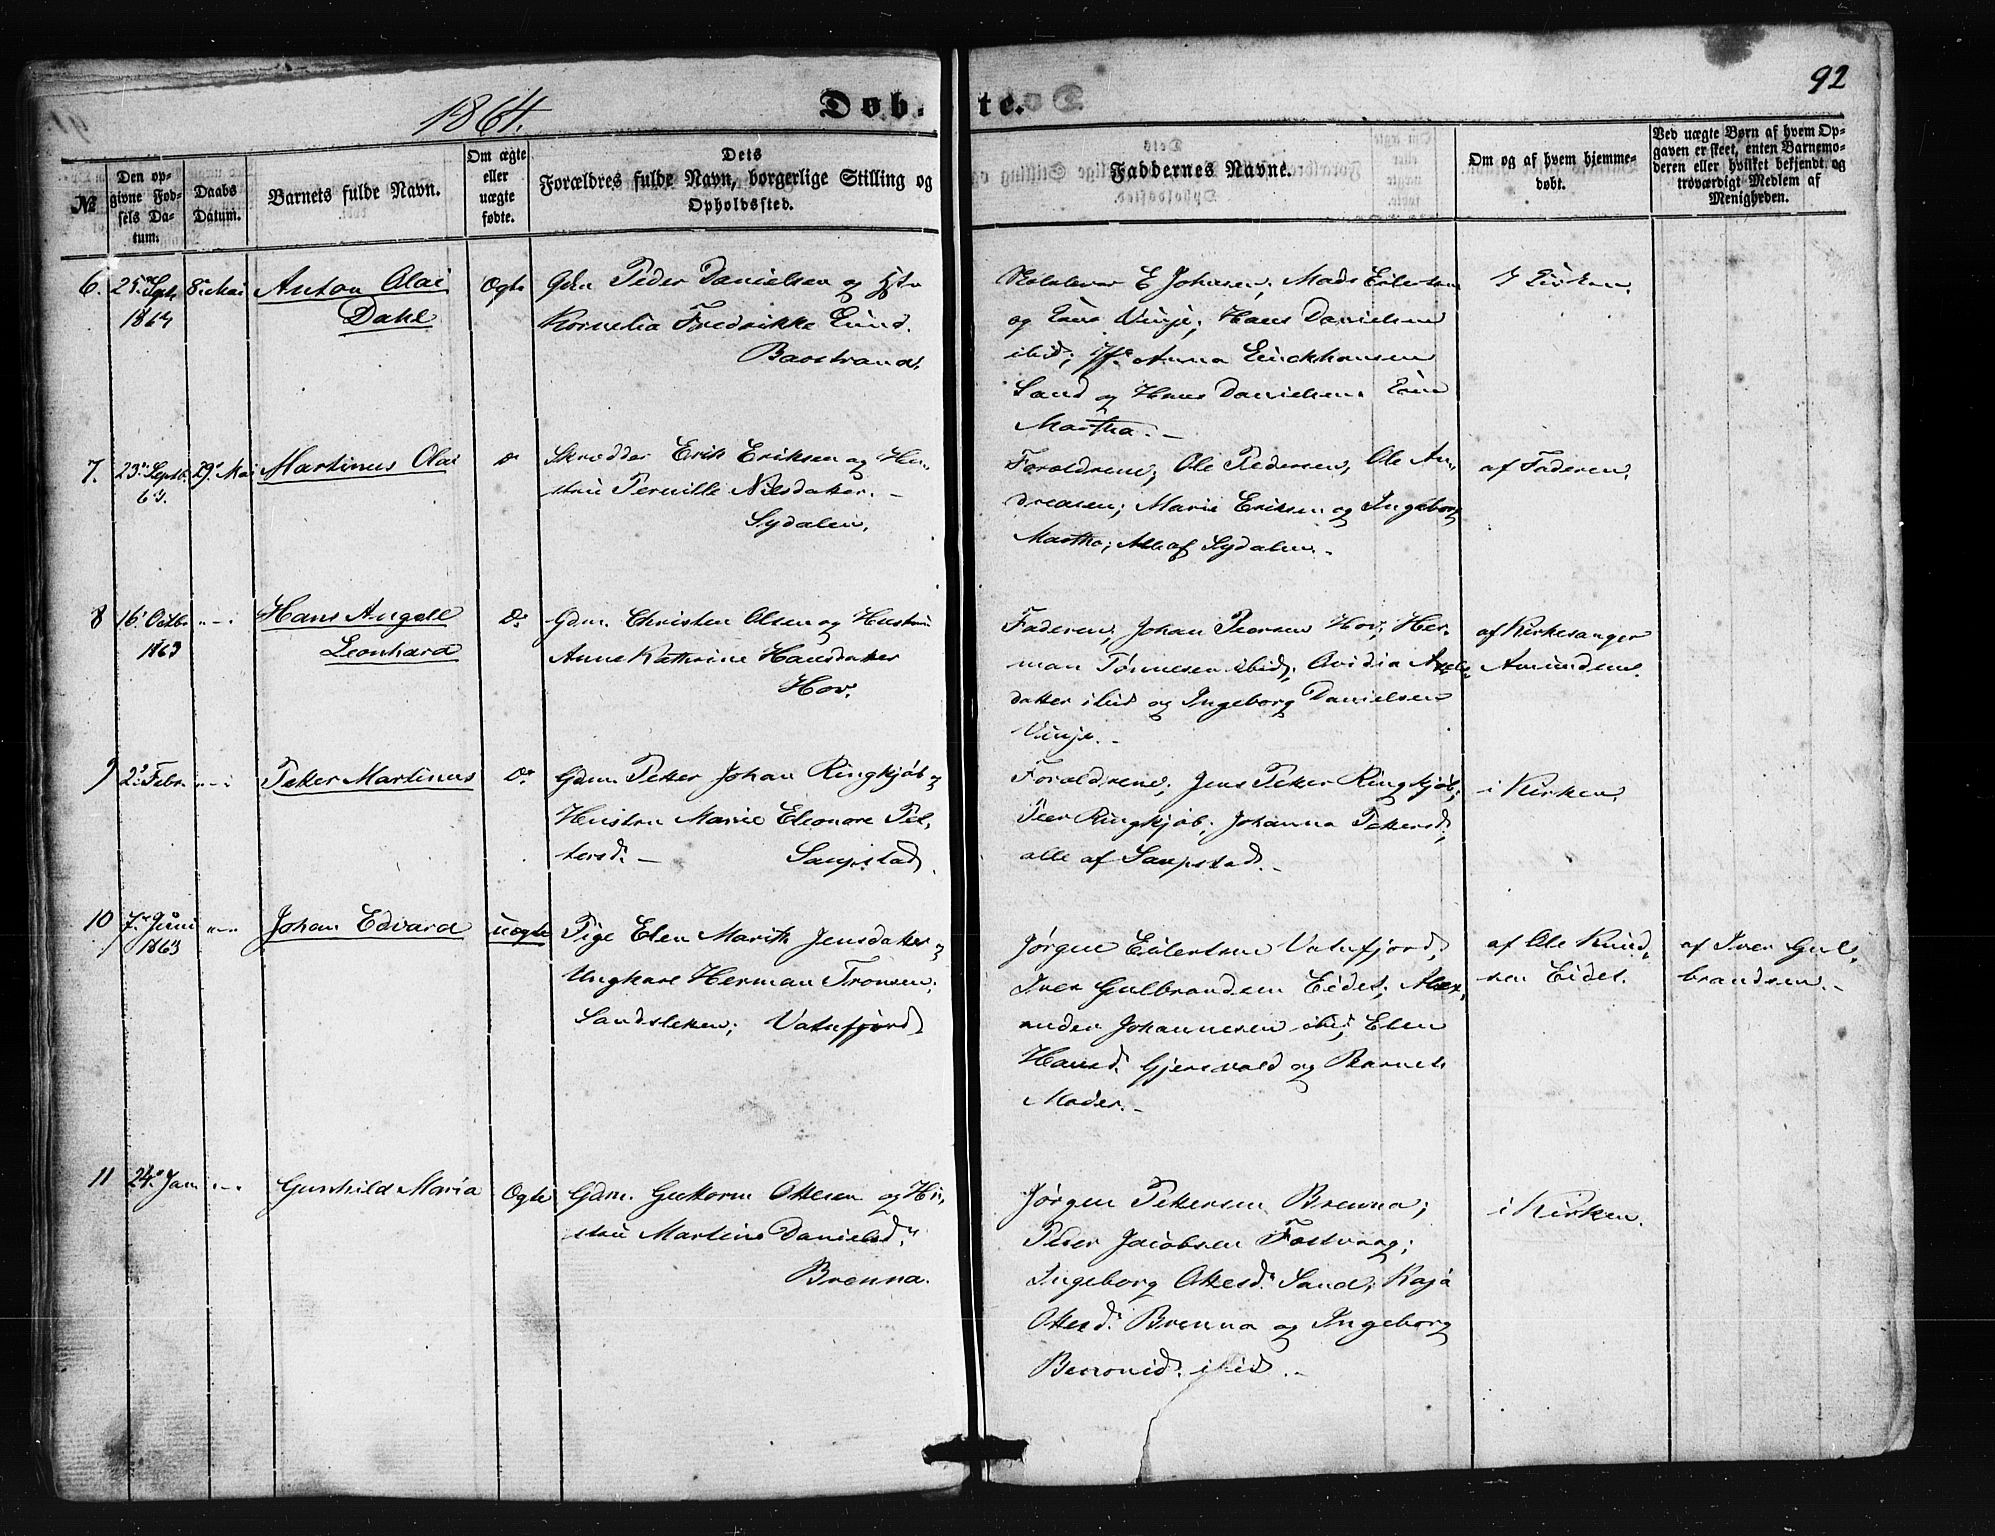 1864.
Døb-
te.
92
№
Den op-
givne Fød-
sels Da-
tum.
Daabs
Datum.
Barnets fulde Navn.
Om ægte
eller
uægte
fødte.
Dets
Forældres fulde Navn, borgerlige Stilling og
Opholdssted.
Faddernes Navne.
Om og af hvem hjemme-
døbt.
Ved uægte Børn af hvem Op-
gaven er skeet, enten Barnemo-
deren eller hvilket bekjendt og
troværdigt Medlem af
Menigheden.
6.
25. Sept.
8de Mai
Anton Olai
Dahl
Ægte
Gdm Peder Danielsen og Hstr
Kornelia Fredrikke
Baostrand.
E Johnsen; Mads Eilertsen
og Vinje; Hans Danielsen
ibid; Anna Erickhansen
Sand og Hans Danielsen
Martha. -
I Kirken.
7.
23. Septb.
63.
29. Mai
Martinus Olai
Do
Skrædder Erik Eriksen og Hu-
stru Pernille Nilsdatter. -
Sydalen.
Forældrene; Ole Pedersen, Ole An-
dreasen; Marie Eriksen og Ingeborg
Martha; Alle af Sydalen. -
af Faderen.
8
16. Octbr
1863
" - "
Hans Angell
Leonhard
Do
Gdm. Christen Olsen og Hustru
Anne Kathrine Hansdatter
Hov.
Faderen; Johan Peersen Hov; Her-
man Tønnesen ibid; Ovidia Axels-
datter ibid og Ingeborg Danielsen
Vinje. -
af Kirkesanger
Amundsen.
9
2. Febr.
" - "
Petter Martinus
Do
Gdm. Petter Johan Ringkjøb og
Hustru Marie Eleonore Pet-
tersd. - Saupstad
Forældrene; Jens Petter Ringkjøb;
Peer Ringkjøb; Johanna Pettersd.
alle af Saupstad. -
i Kirken.
10
7. Juni
1863
" - "
Johan Edvard
uægte
Pige Elen Marith Jensdatter og
Ungkarl Herman Tronsen;
Sandsletten; Vatnfjord
Jørgen Eilertsen Vatnfjord,
Iver Gulbrandsen Eidet; Alex-
ander Johannesen ibid; Elen
Hansd. Gjersvold og Barnets
Moder. -
af Ole Knud-
sen Eidet.
af Iver Gul-
brandsen. -
11
24. Jan
" - "
Gunhild Maria
Ægte
Gdm. Guttorm Ottesen og Hu-
stru Martine Danielsd.
Brenna.
Jørgen Pettersen Brenna;
Peder Jacobsen Festvaag;
Ingeborg Ottesd. Sand; Kaja
Ottesd. Brenna og Ingeborg
ibid. -
i Kirken.